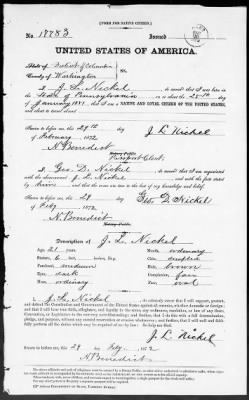 [FORM FOR NATIVE CITIZEN.]
No. 17783 Issued
UNITED STATES OF AMERICA.
State of District of Columbia
County of Washington } ss.
I, J. L. Nickel, do swear that I was born in the
State of Pennsylvania on or about the 28th day of
January 1831; that I am a NATIVE AND LOYAL CITIZEN OF THE UNITED STATES,
and about to travel abroad.
Sworn to before me, this 29th day J. L. Nickel
of February 1872
N. Benedict
Notary Public
Passport Clerk
I, Geo. D. Nickel, do swear that I am acquainted
with the above-named J. L. Nickel, and with the facts stated
by him, and that the same are true to the best of my knowledge and belief.
Sworn to before me, this 29 day Geo. D. Nickel
of Feby 1872
N. Benedict
Notary Public
Description of J. L. Nickel
Age: Mouth: ordinary
Stature: 6 feet inches Chin:
Forehead: medium Hair: brown
Eyes: dark Complexion: fair
Nose: ordinary Face: oval
I, J. L. Nickel, do solemnly swear that I will support, protect,
and defend the Constitution and Government of the United States against all enemies, whether domestic or foreign;
and that I will bear true faith, allegiance, and loyalty to the same, any ordinance, resolution, or law of any State,
Convention, or Legislature to the contrary notwithstanding; and further, that I do this with a full determination,
pledge, and purpose, without any mental reservation or evasion whatsoever; and further, that I will well and faith-
fully perform all the duties which may be required of me by law: So help me God.
J. L. Nickel
Sworn to before me, this 29 day
of Feby 1872
N Benedict